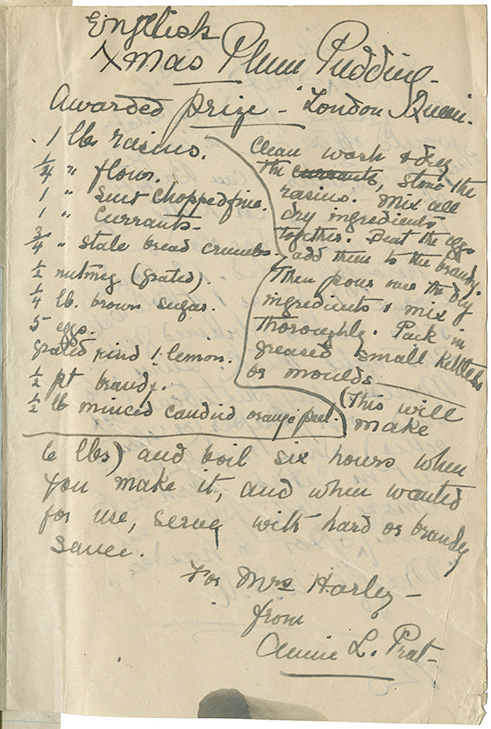 English
Xmas Plum Pudding.
Awarded prize - "London Queen".
1 lb. rasins.
1/4 " flour.
1 " Suet chopped fine.
1 " Currants.
3/4 " Stale bread crumbs.
1/2 nutmeg (grated).
1/4 lb. brown sugar.
5 egs.
grated rind 1 lemon.
1/2 pt brandy.
1/2 lb minced candied orange peel.
Clean wash & dry
the currants, stone the
rasins. Mix all
dry ingredients
together. Beat the eggs
add them to the brandy.
Then pour over the dry
ingredients & mix
thoroughly. Pack in
greased small kettles
or moulds
(This will
make
6 lbs) and boil six hours when
you make it, and when wanted
for use, serve with hard or brandy
sauce.
For Mrs Harley -
from
Annie L. Prat -